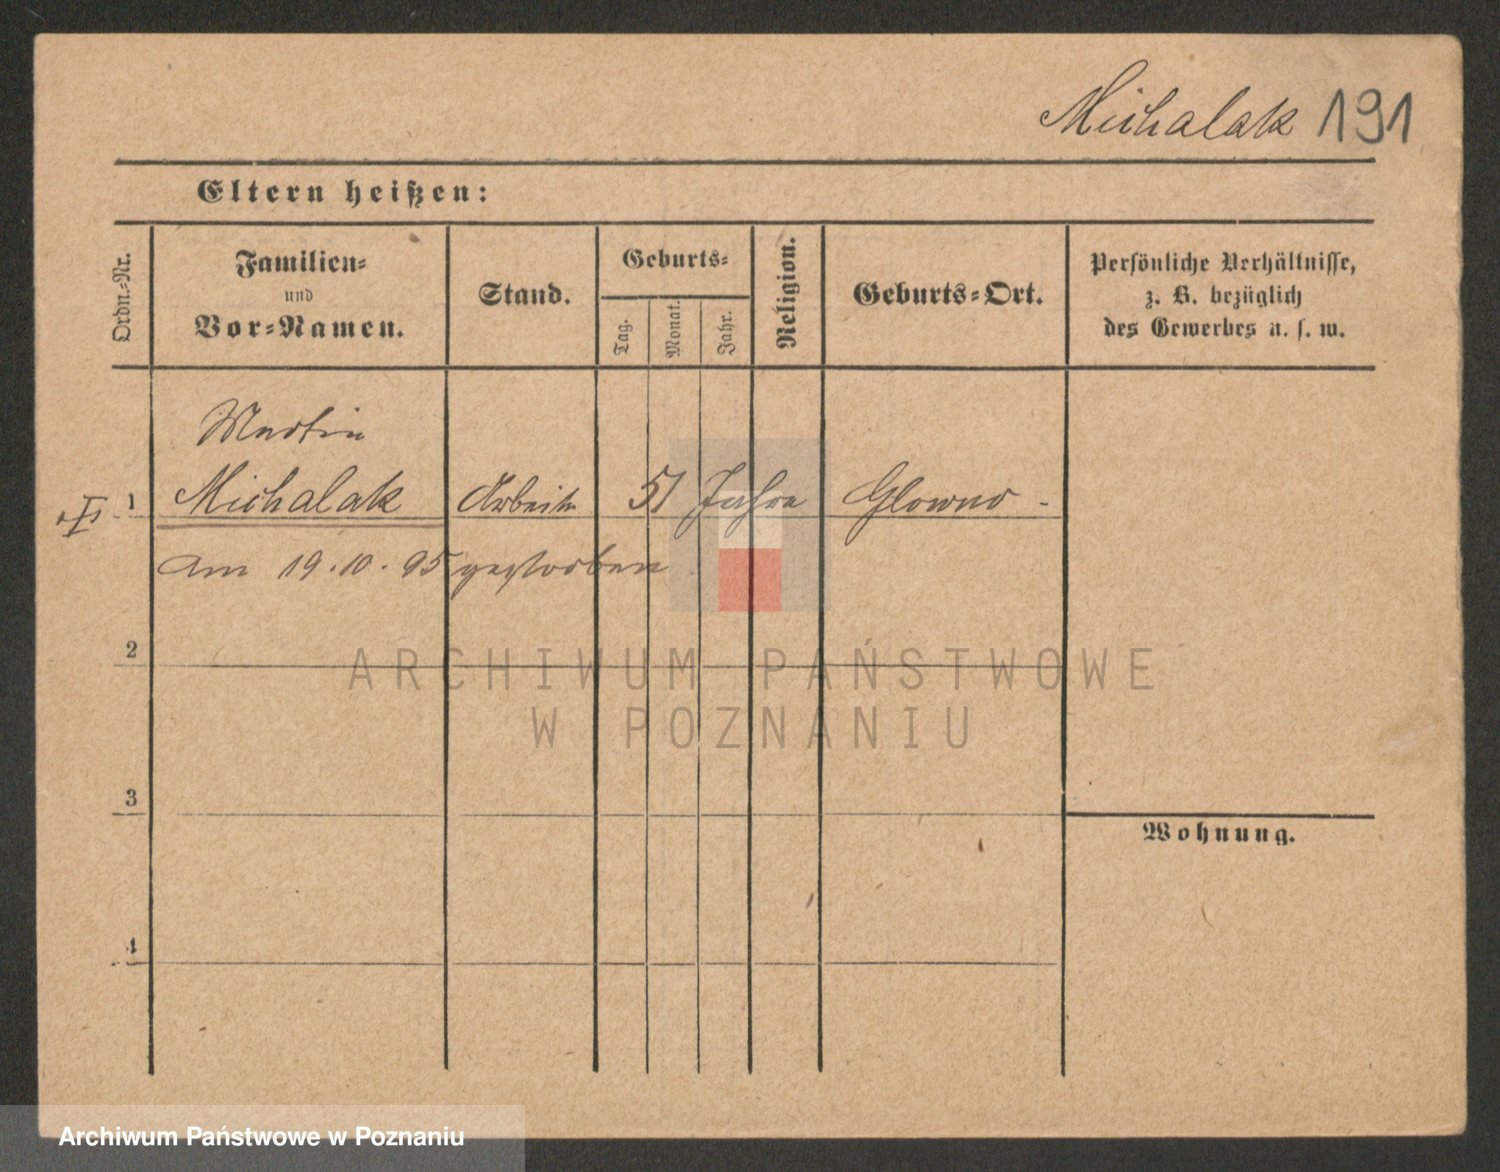 Michalak 191
Eltern heißen:
Ordn.-Nr.
Familien-
und
Vor-Namen.
Stand.
Geburts-
Tag.
Monat.
Jahr.
Religion.
Geburts-Ort.
Persönliche Verhältnisse,
z. B. bezüglich
des Gewerbes u. s. w.
Martin
1 Michalak Arbeiter 51 Jahre Glowno -
am 19.10.95 gestorben
2
ARCHIWUM PAŃSTWOWE
W POZNANIU
3
Wohnung.
4
Archiwum Państwowe w Poznaniu